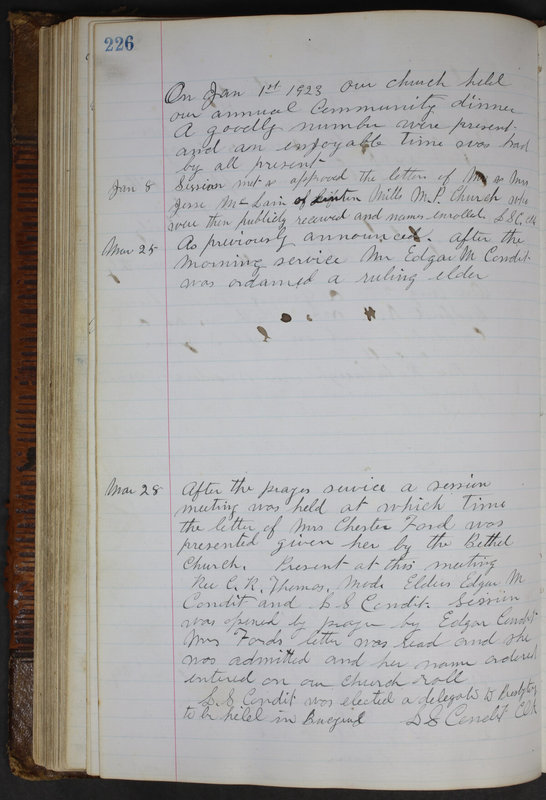 226
On Jan 1st 1923 our church held
our annual Community dinner
A goodly number were present
and an enjoyable time was had
by all present
Jan 8 Session met & approved the letters of Mr & Mrs
Jesse McLain of Mills M.P. Church who
were then publicly received and names enrolled. L.S.C. clk
Mar 25 As previously announced. After the
morning service Mr Edgar M Condit
was ordained a ruling elder
Mar 28 After the prayer service a session
meeting was held at which time
the letter of Mrs Chester Ford was
presented given her by the Bethel
Church. Present at this meeting
Rev C. R. Thomas, Mod. Elders Edgar M
Condit and L S Condit. Session
was opened by prayer by Edgar Condit
Mrs Fords letter was read and she
was admitted and her name ordered
entered on our church roll
L. S. Condit was elected a delegate to Presbytery
to be held in L S Condit Clk